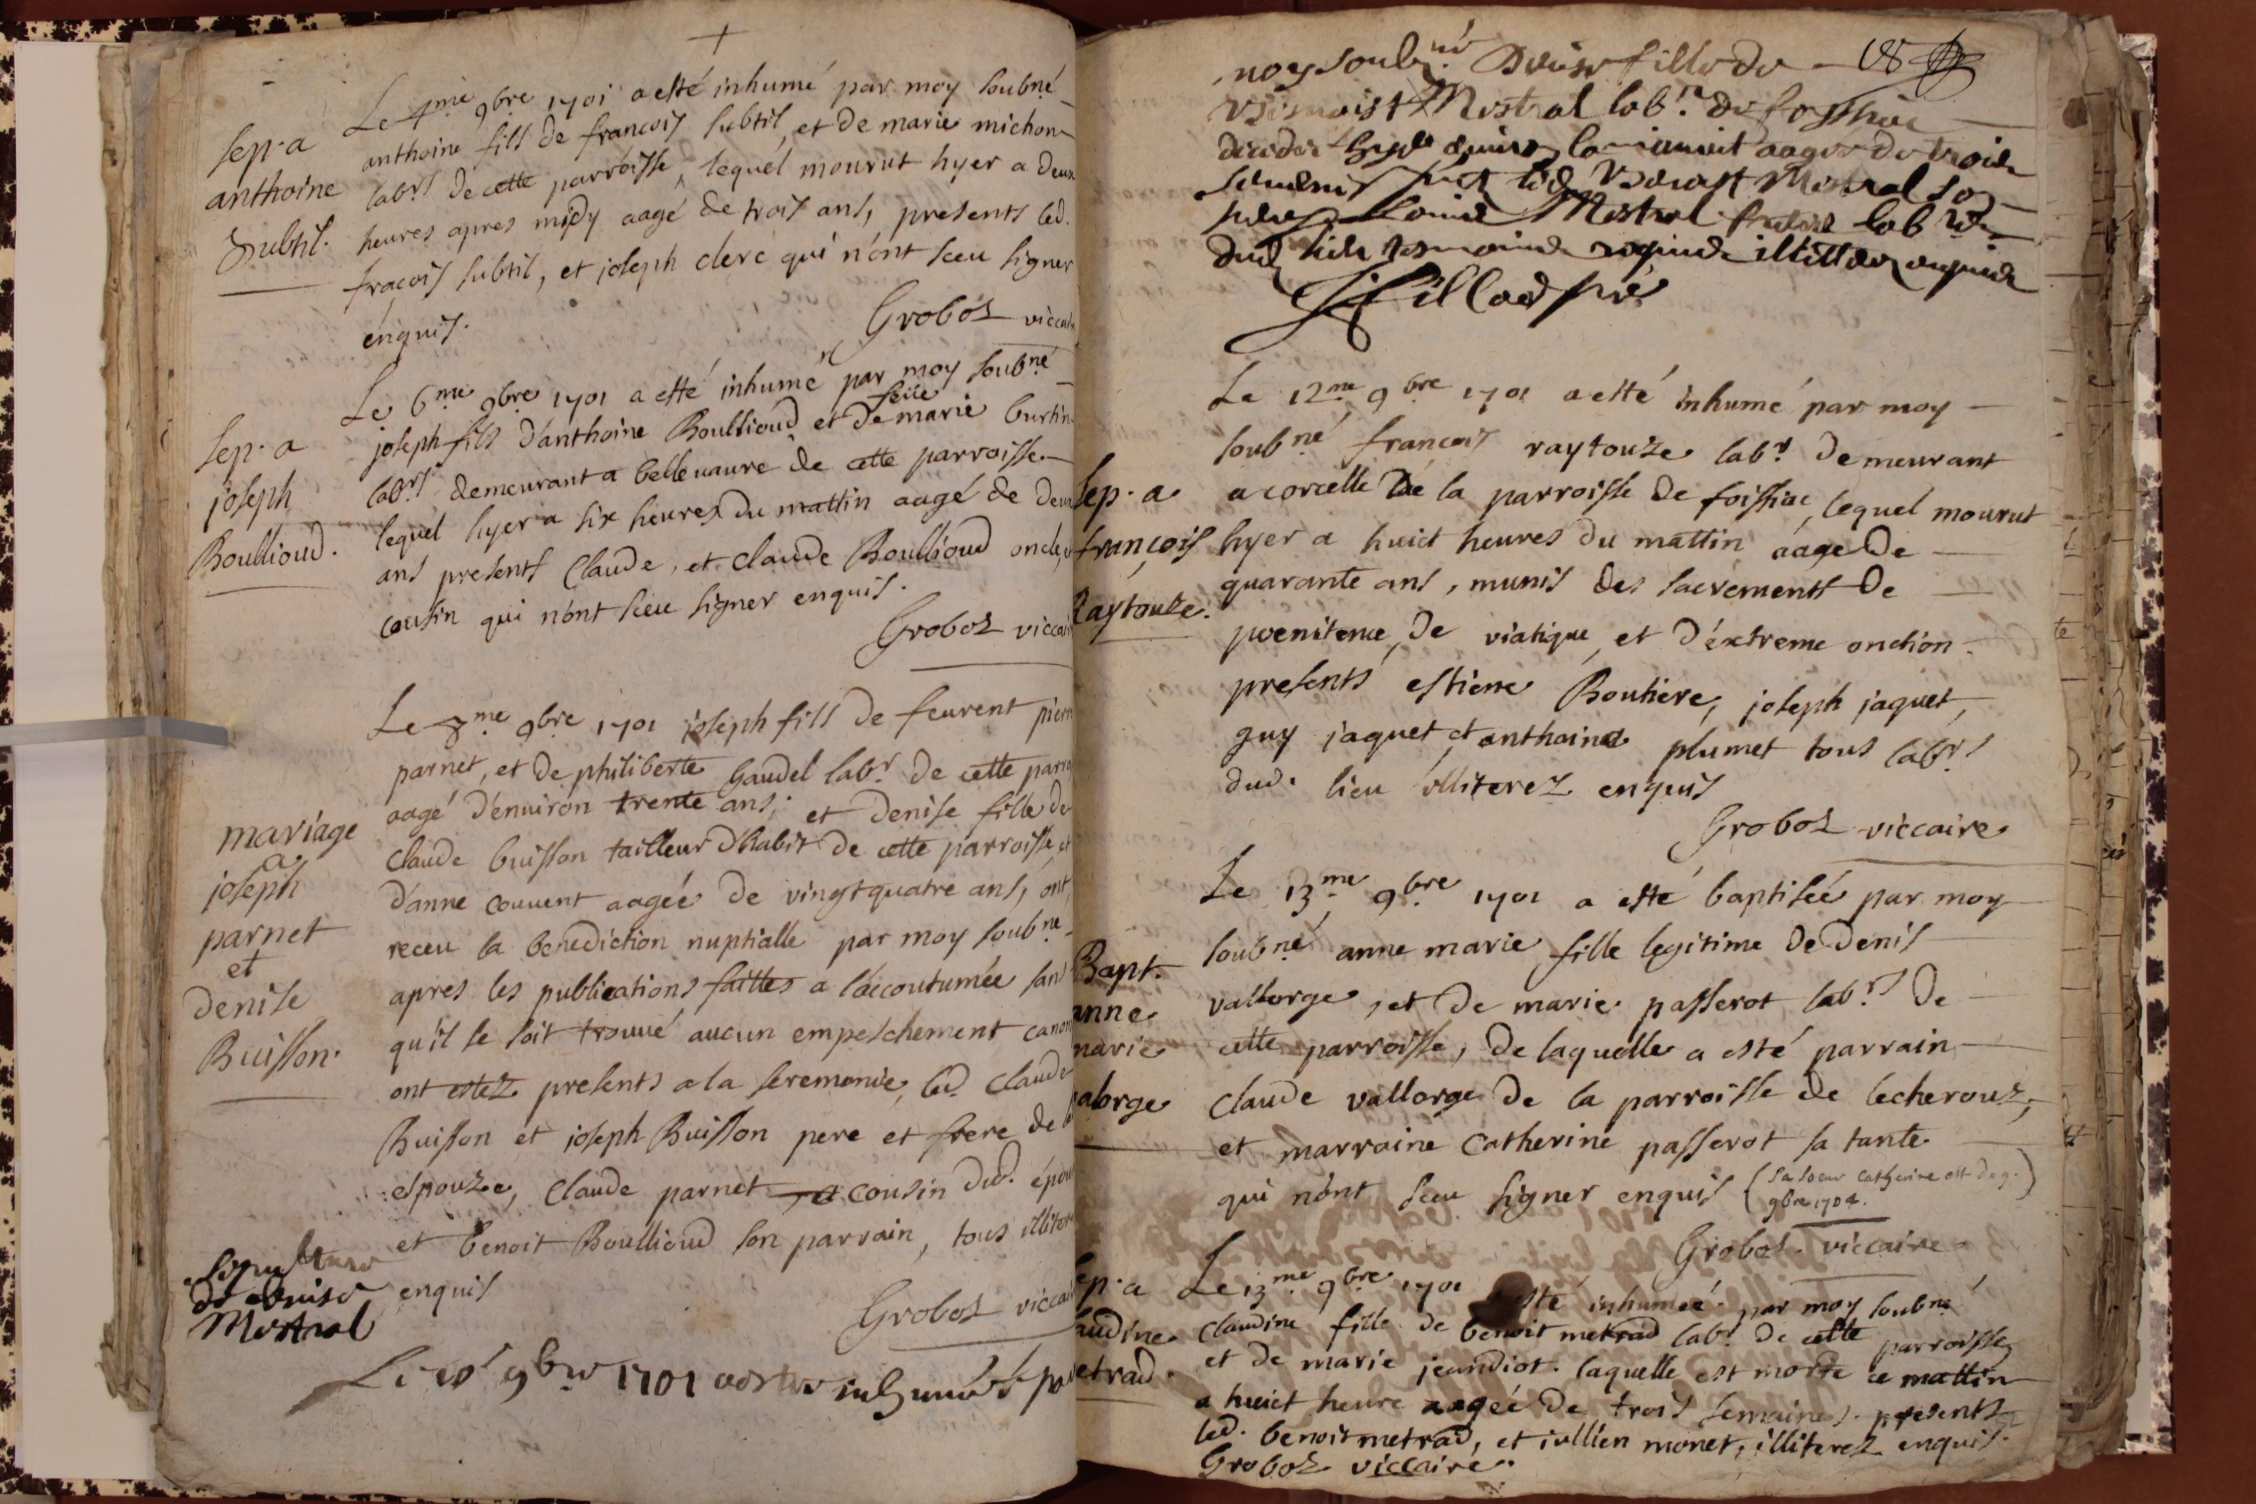 Sep. a
anthoine
Subtil.
Le 4me 9bre 1701 a esté inhumé par moy soubné
anthoine fils de francois subtil, et de marie michon
labrs de cette parroisse, lequel mourut hyer a deux
heures apres midy aagé de trois ans, presents led.
fracois subtil, et joseph clerc qui n'ont sceu signer
enquis.
Groboz viccai
Sep. a
joseph
Boullioud.
Le 6me 9bre 1701 a esté inhumé par moy soubné
joseph fils d'anthoine Boullioud et de feüe marie burtin
labrs demeurant a bellevavre de cette parroisse
lequel hyer a six heures du mattin aagé de deux
ans presents Claude, et Claude Boullioud oncle,
cousin qui n'ont sceu signer enquis.
Groboz viccai
mariage
a
joseph
parnet
et
denise
Buisson.
Le 8me 9bre 1701 joseph fils de feurent pierre
parnet, et de philiberte gaudel labr de cette parro
aagé d'environ trente ans; et denise fille de
Claude buisson tailleur d'habit de cette parroisse, et
d'anne couvent aagée de vingt quatre ans, ont
receu la benediction nuptialle par moy soubné
apres les publications faittes a l'accoutumée sans
qu'il se soit trouvé aucun empeschement canon
ont estez presents a la seremonie, led. Claude
Buisson et joseph Buisson pere et frere de l
espouze, Claude parnet cousin dud. épou
et benoit Boullioud son parrain, tous illiter
enquis
Groboz viccai
Sepulture
de denise
Mestral
Le 10e 9bre 1701 a estee inhumée par
moy soubné denise fille de 18
benoist Mestral labr de foissia
decedee hyer environ la minuit aagee de trois
semenes led. benoist Mestral
Mestral labr
dud lieu illitteres enquis
Sep. a
françois
Raytouze.
Le 12me 9bre 1701 a esté inhumé par moy
soubné francois raytouze labr demeurant
a corcelle de la parroisse de foissiac, lequel mourut
hyer a huict heures du mattin aage de
quarante ans, munis des sacrements de
poenitence, de viatique, et d'éxtreme onction.
presents estiene Boutiere, joseph jaquet,
guy jaquet et anthoine plumet tous labrs
dud. lieu illiterez enquis
Groboz viccaire
Bapt.
anne
marie
valorge
Le 13me 9bre 1701 a esté baptisée par moy
soubné anne marie fille legitime de denis
vallorge, et de marie passerot labrs de
cette parroisse, de laquelle a esté parrain
Claude vallorge de la parroisse de lecherouz,
et marraine Catherine passerot sa tante
qui n'ont sceu signer enquis (sa soeur catherine est du 9.
9bre 1704.)
Groboz viccaire
Sep. a
audine
etrad.
Le 13me 9bre 1701 esté inhumée par moy soubné
Claudine fille de benoit metrad labr de cette parroisse
et de marie jeandiot. laquelle est morte ce mattin
a huict heure aagée de trois semaines. presents
led. benoit metrad, et jullien monet, illiterez enquis.
Groboz viccaire.